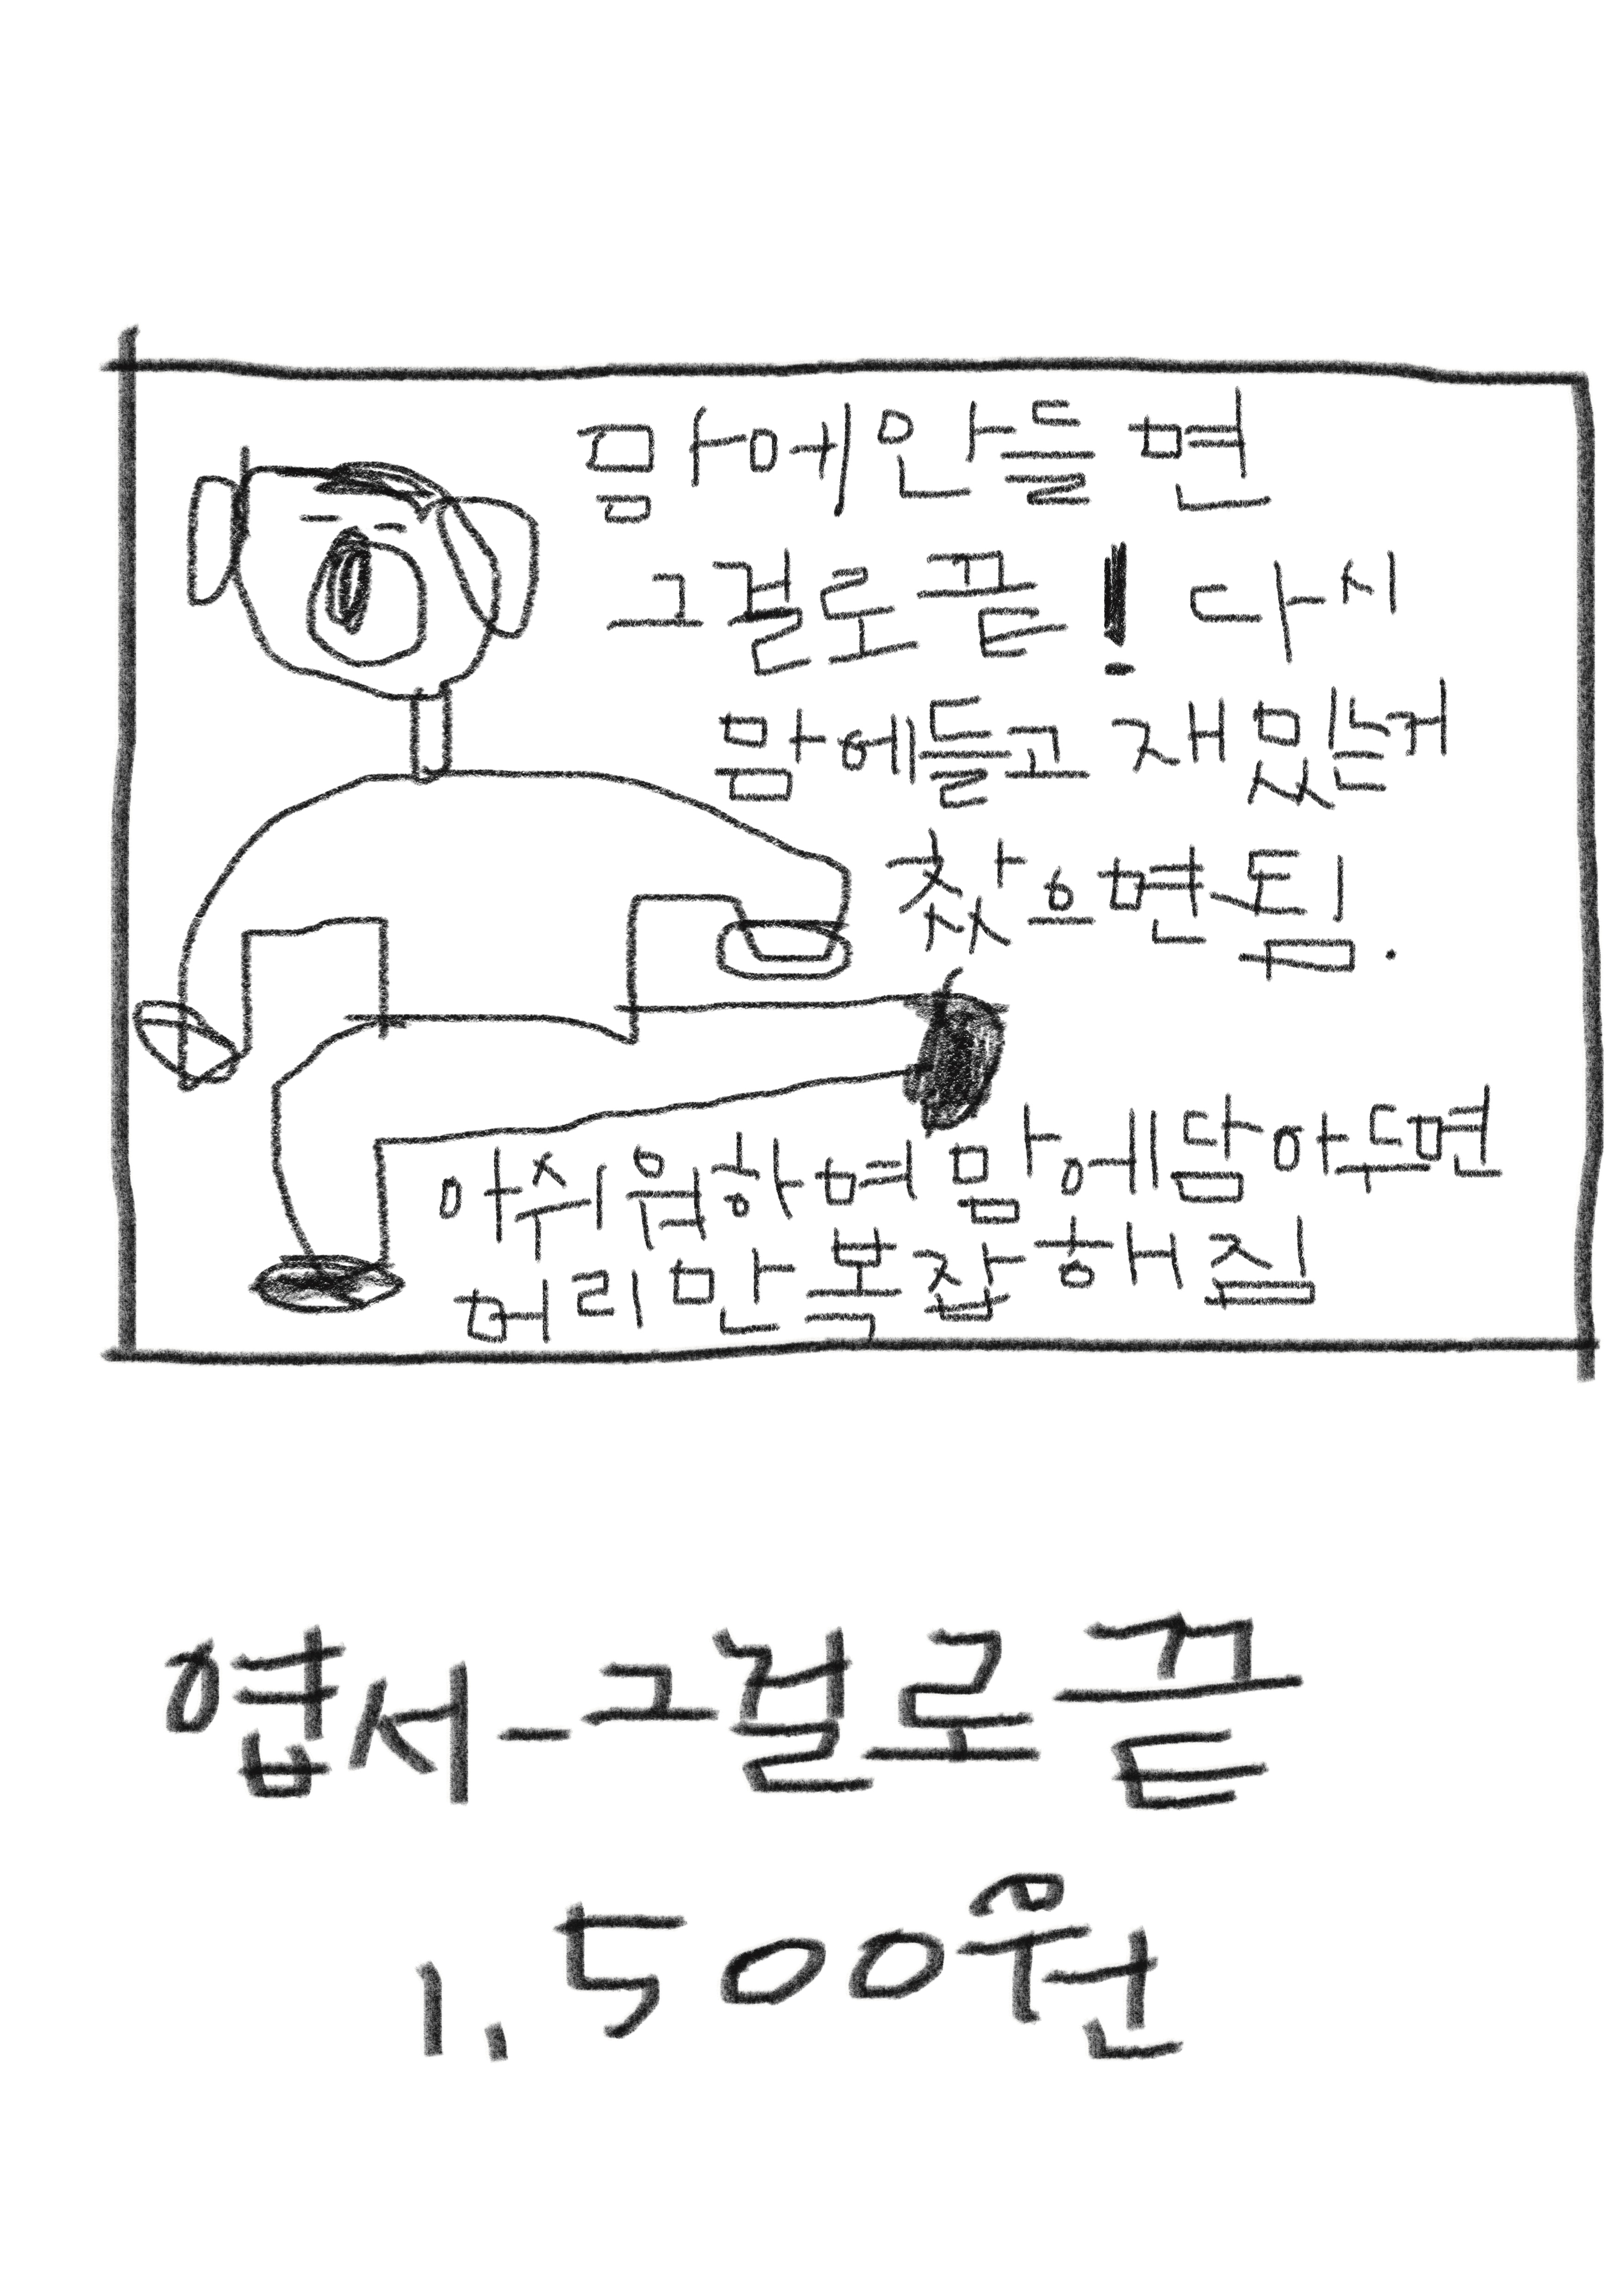 맘에안들면
그걸로끝! 다시
맘에들고 재밌는거
찾으면됨.
아쉬워하며 맘에담아두면
머리만복잡해짐
엽서-그걸로끝
1,500원